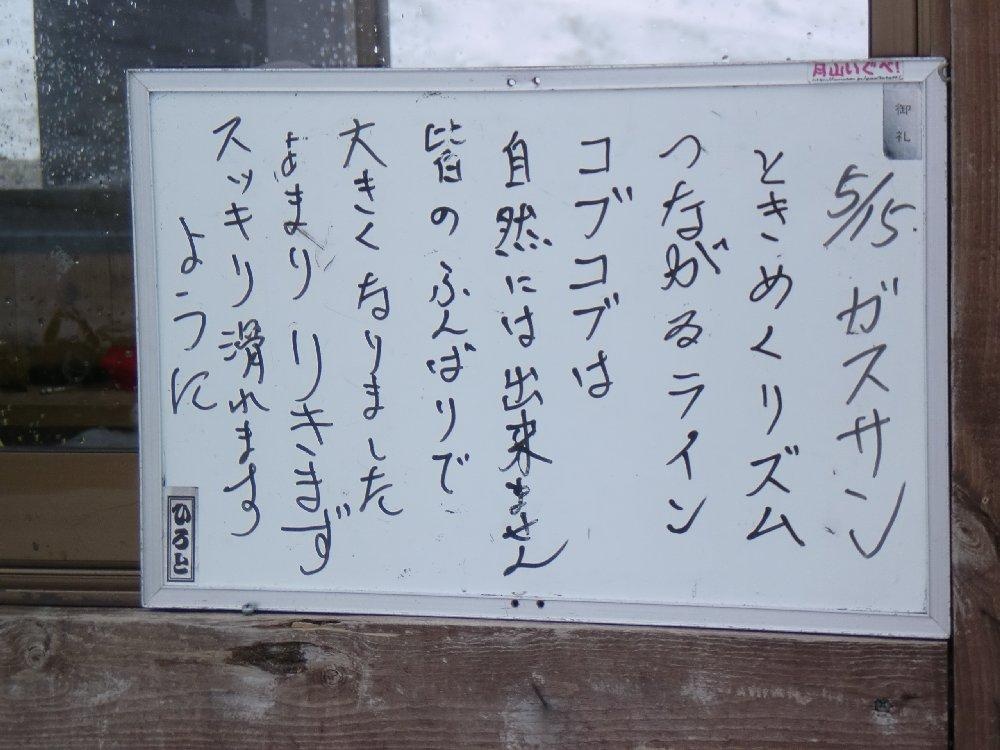 月山いぐべ!
御礼
5/15 ガスサン
ときめくリズム
つながるライン
コブコブは
自然には出来ません
皆のふんばりで
大きくなりました
あまり りきまず
スッキリ滑れます
ように